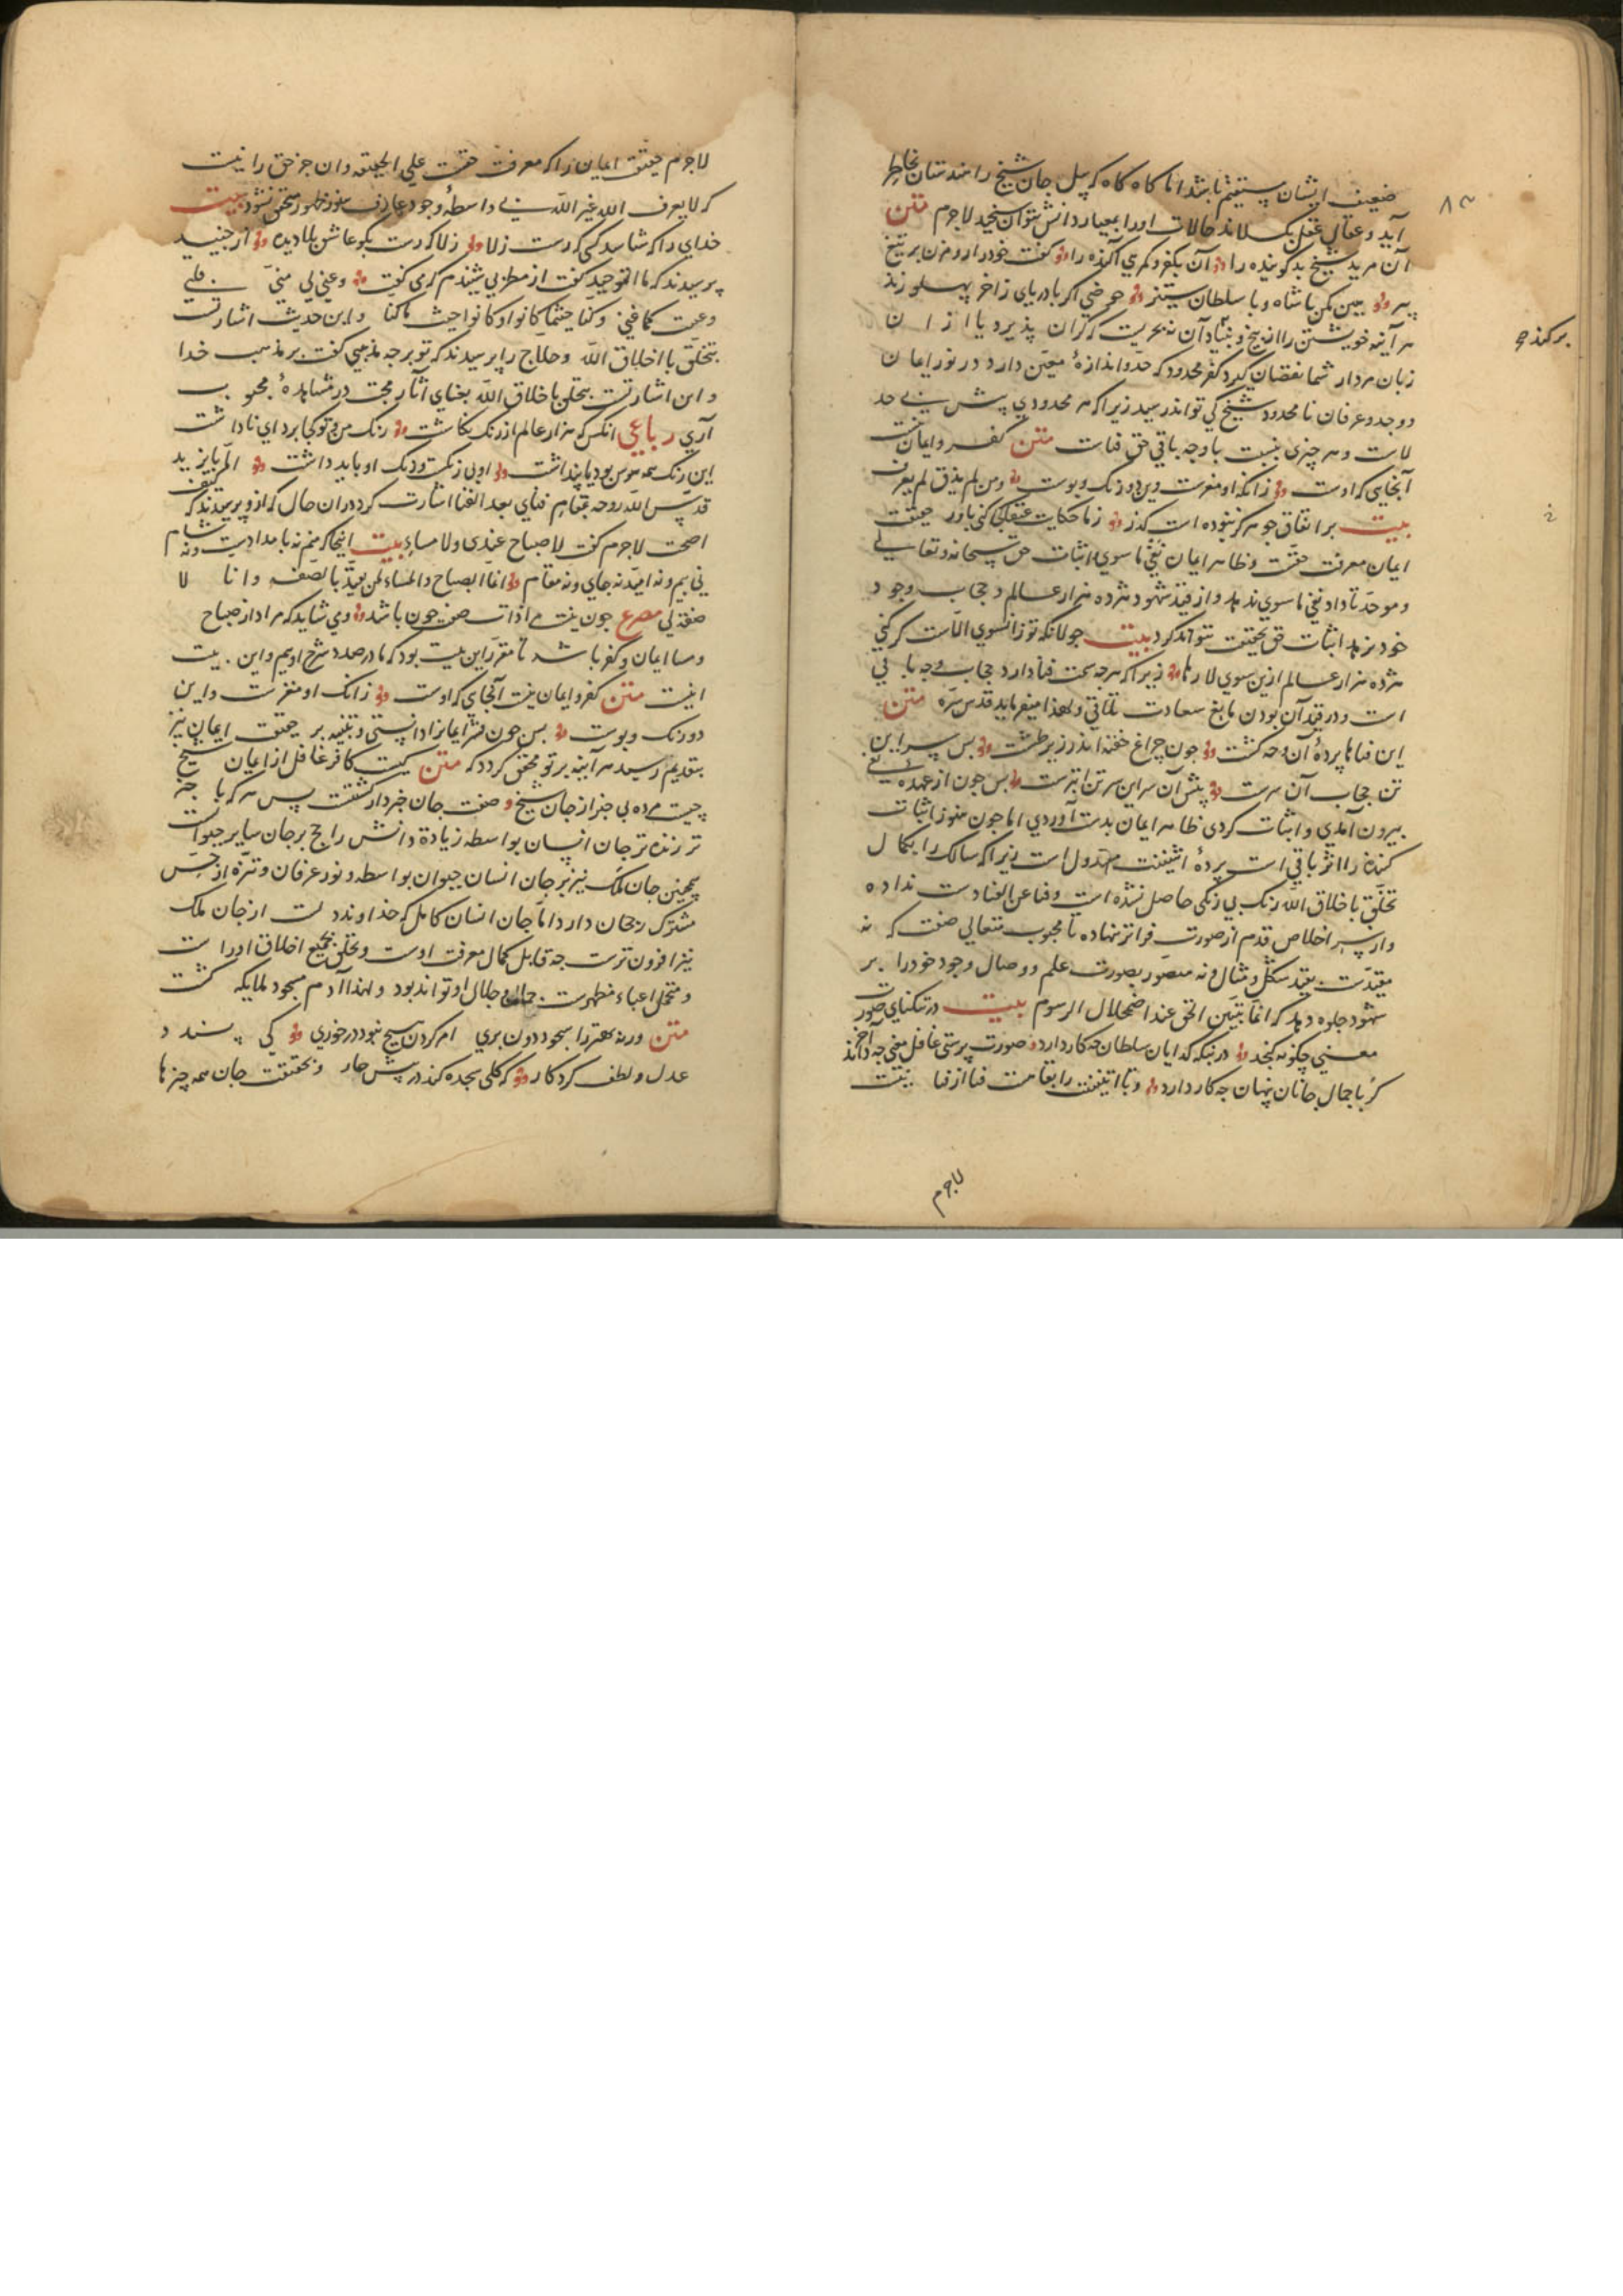 ۸۳
ضعیف ایشان مستقیم باشد اما کاه کاه که پیل جان شیخ را هندستان بخاطر
آید و عقال عقل بکسلاند حالات او را بمعیار دانش نتوان سنجید لاجرم متن
آن مرید شیخ بد کوینده را آن بکفر و کمرهی آکنده را کفت خود را تو مزن بر تیغ
هین مکن با شاه و با سلطان ستیز حوضی اکر با دریای زاخر پهلو زند
هر آینه خویشتن را از بیخ و بنیاد آن نه بحریست کو کران پذیرد یا از ان
برکند
زبان مردار شما نقصان کیرد کفر محدود که حد و اندازهٔ معین دارد در نور ایمان
و وجد و عرفان نا محدود شیخ کی تواند رسید زیرا که هر محدودی پیش بی حد
لاست و هر چیزی بنسبت با وجه باقی حق فناست متن کفر و ایمان نیست
آنجایی که اوست زانکه او مغزست وین دو رنک و پوست ومن لم یذق لم یعرف
بیت بر اتفاق جوهر کز نبوده است کذر زما حکایت کنی باور حقیقت
ایمان معرفت حقست و ظاهر ایمان نفی ما سوی و اثبات حق سبحانه و تعالی
و موحد تا داد نفی ما سوی ندهد و از قید شهود هژده هزار عالم و حجاب وجود
خود نرهد اثبات حق بحقیقت نتواند کرد بیت جولانکه تو زانسوی الاست کر کنی
هژده هزار عالم ازین سوی لا رها زیرا که هر چه سمت فنا دارد حجاب وجه باقی
است و در قید آن بودن مانع سعادت تلاقی و لهذا میفرماید قدس سره متن
این فناها پردهٔ آن وجه کشت چون چراغ خفته اندر زیر طشت پس سر این
تن حجاب آن سرست پیش آن سر این سر تن ابترست پس چون از عهدهٔ نفی
بیرون آمدی و اثبات کردی ظاهر ایمان بدست آوردی اما چون هنوز اثبات
کننده را اثر باقی است پردهٔ اثنینیت مسدول است زیرا که سالک را بکمال
تخلق باخلاق الله رنک بی رنکی حاصل نشده است و فنا عن الفنا دست نداده
و از سر اخلاص قدم از صورت فراتر ننهاده تا محبوب متعالی صفت که نه
مقیدست بقید شکل و مثال و نه متصور بصورت علم و وصال وجود خود را بر
شهود جلوه دهد که انما یتبین الحق عند اضمحلال الرسوم بیت در تنکنای صورت
معنی چکونه کنجد در بنکه کدایان سلطان چه کار دارد صورت پرستی غافل معنی چه داند آخر
کو با جمال جانان پنهان چه کار دارد و تا اثنینیت را بقاست فنا از فنا نیست
لاجرم
لاجرم حقیقت ایمان را که معرفت حقست علی الحقیقه و ان جز حق را نیست
که لا یعرف الله غیر الله بی واسطهٔ وجود عارف بنور ظهور متحقق نشود بیت
خدای را که شناسد کسی که رست زلا زلا که رست بکو عاشق بلا دیده از جنید
پرسیدند که ما التوحید کفت از مطربی شنیدم که می کفت وغنی لی منی قلبی
وغنیت کما غنی وکنا حیثما کانوا وکانوا حیث ما کنا و این حدیث اشارتست
بتخلق با اخلاق الله و حلاج را پرسیدند که تو بر چه مذهبی کفت بر مذهب خدا
و این اشارتست بتخلق باخلاق الله بفنای آثار محبت در مشاهدهٔ محبوب
آری رباعی انکس که هزار عالم از رنک نکاشت رنک من و تو کجا برد ای ناداشت
این رنک همه هوس بود یا پنداشت او بی رنکست و رنک او باید داشت الم بایزید
قدس الله روحه بمقام فنای بعد الفنا اشارت کرد دران حال که ازو پرسیدند که کیف
اصبحت لاجرم کفت لا صباح عندی ولا مساء بیت اینجا که منم نه بامدادست و نه شام
نی بیم و نه امید نه جای و نه مقام انما الصباح والمساء لمن تقید بالصفه وانا لا
صفة لی مصرع چون نیست مرا ذات صفت چون باشد وی شاید که مراد از صباح
و مسا ایمان و کفر باشد تا مقرر این بیت بود که ما در صدد شرح اویم و این بیت
اینست متن کفر و ایمان نیست آنجایی که اوست زانک او مغزست و این
دو رنک و پوست پس چون قشر ایمانرا دانستی و تنبیه بر حقیقت ایمان نیز
بتقدیم رسید هر آینه بر تو محقق کردد که متن کیست کافر غافل از ایمان شیخ
چیست مرده بی خبر از جان شیخ و صفت جان خبردار کشتنست پس هر که با خبر
تر زنده تر جان انسان بواسطه زیادهٔ دانش راجح بر جان سایر حیوانست
همچنین جان ملک نیز بر جان انسان حیوان بواسطه و نور عرفان و تنزه از حس
مشترک رجحان دارد اما جان انسان کامل که خداوند دلست از جان ملک
نیز افزون ترست چه قابل کمال معرفت اوست و تخلق بجمیع اخلاق او راست
و متحمل اعباء مظهریت جمال و جلال او تواند بود و لهذا آدم مسجود ملایکه کشت
متن ورنه بهتر را سجود دون تری امر کردن هیچ نبود در خوری کی پسندد
عدل و لطف کردکار که کلی سجده کند در پیش خار و بحقیقت جان همه چیزها